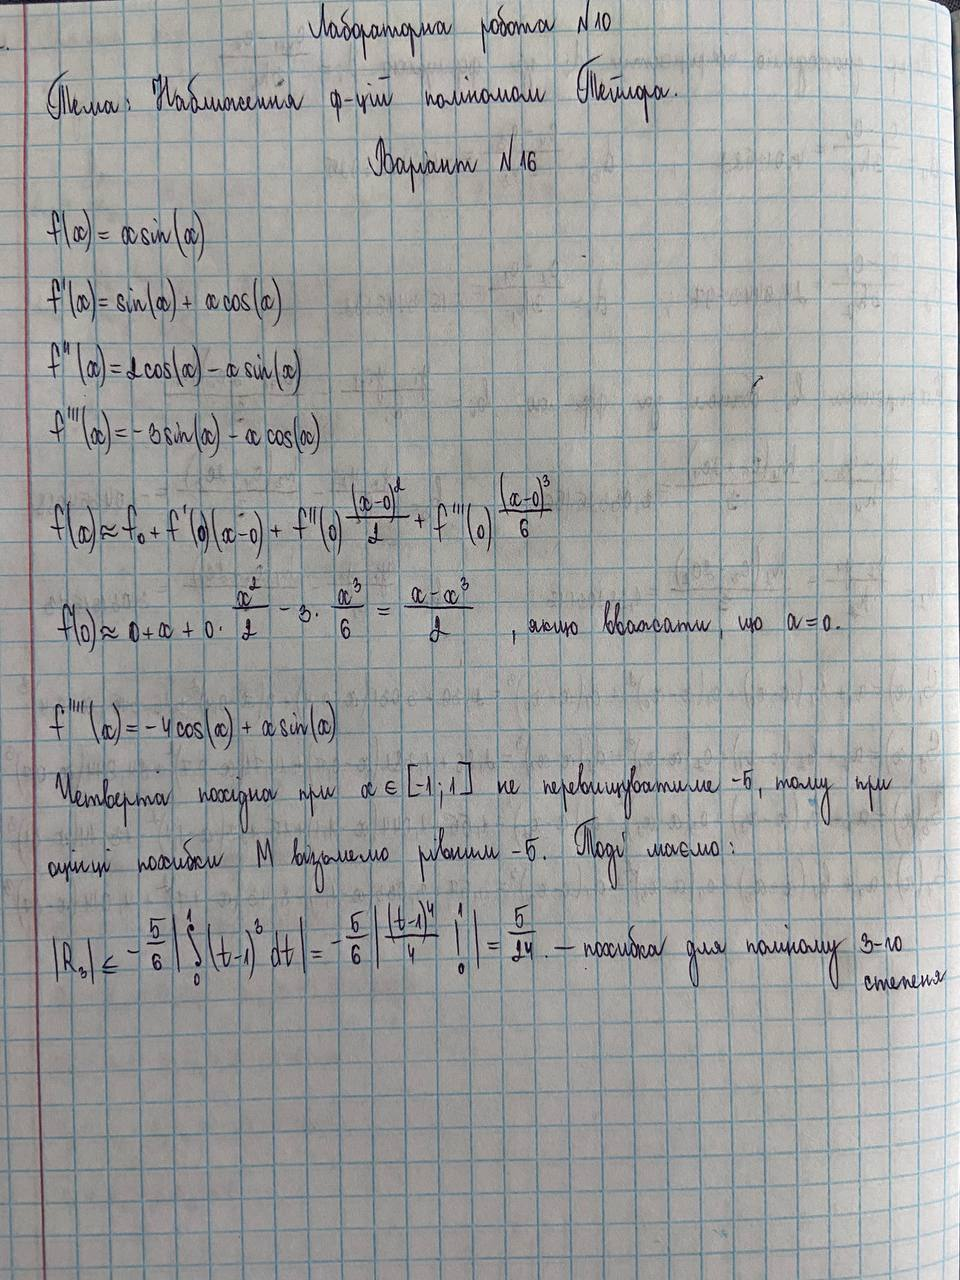 Лабораторна робота N10
Тема: Наближення ф-цій поліномом Тейлора.
Варіант N16
f(x) = x sin(x)
f'(x) = sin(x) + x cos(x)
f''(x) = 2cos(x) - x sin(x)
f'''(x) = -3sin(x) - x cos(x)
f(x) ≈ f₀ + f'(0)(x-0) + f''(0) (x-0)²/2 + f'''(0) (x-0)³/6
f(0) ≈ 0 + x + 0 · x²/2 - 3 · x³/6 = x-x³/2 , якщо вважати, що a=0.
f''''(x) = -4cos(x) + x sin(x)
Четверта похідна при x ∈ [-1; 1] не перевищуватиме -5, тому при
оцінці похибки M візьмемо рівним -5. Тоді маємо:
|R₃| ≤ - 5/6 | ∫₀¹ (t-1)³ dt | = - 5/6 | (t-1)⁴/4 |₀¹ | = 5/24 . — похибка для поліному 3-го
степеня